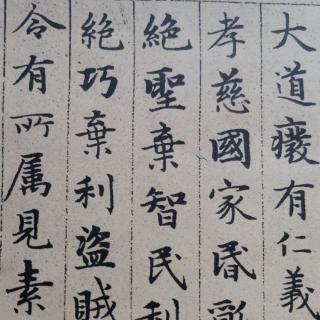 大道癈有仁義
孝慈國家昬
絶聖棄智民利
絶巧棄利盗賊
令有所属見素